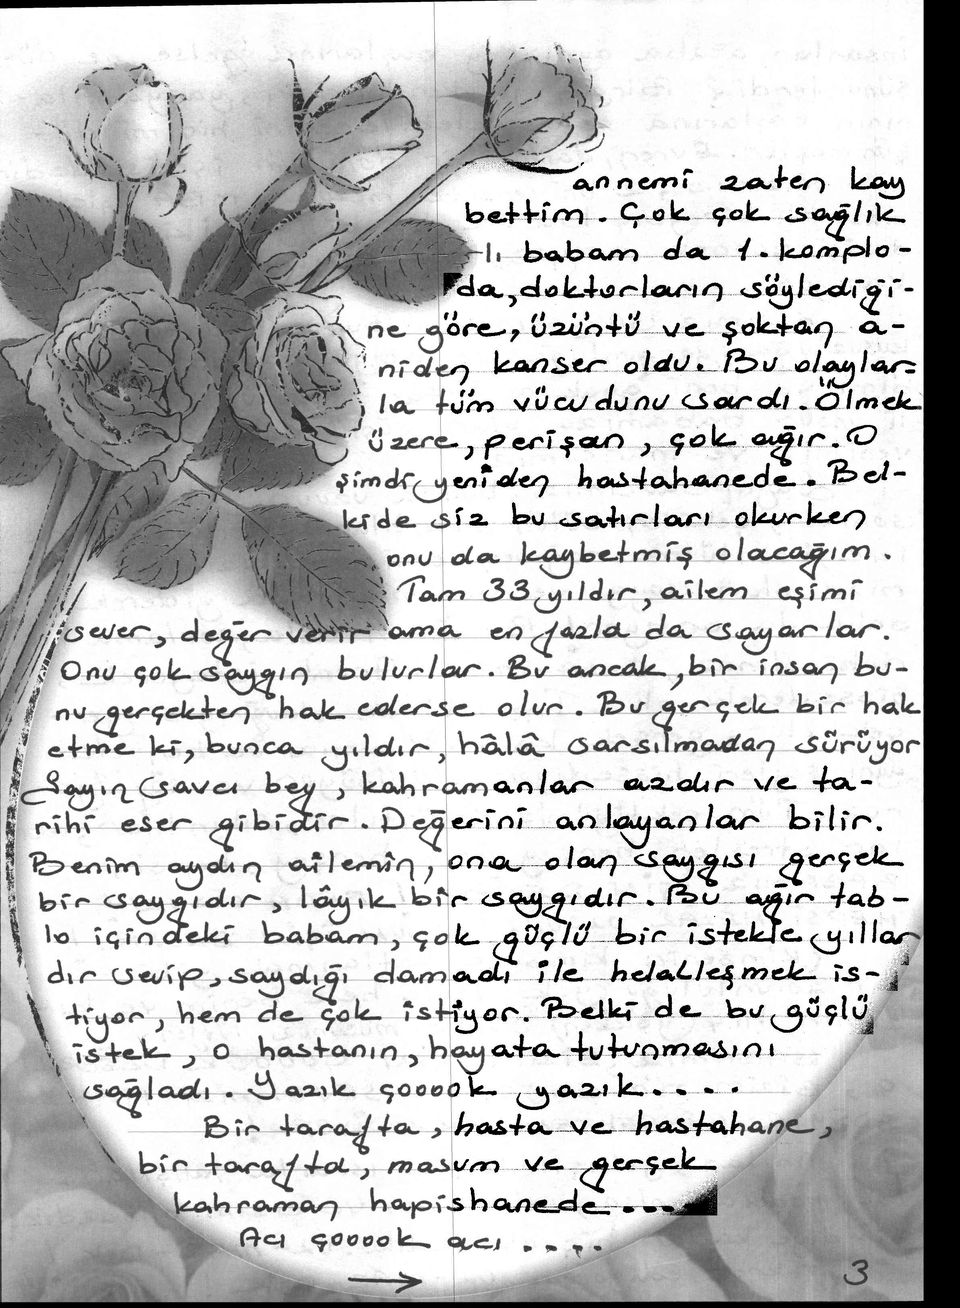 annemi zaten kay
bettim. Çok çok sağlık
lı babam da 1. komplo-
da, doktorların söylediği-
ne göre, üzüntü ve şoktan a-
niden kanser oldu. Bu olaylar=
la tüm vücudunu sardı. Ölmek
üzere, perişan, çok ağır. O
şimdi yeniden hastahanede. Bel-
kide siz bu satırları okurken
onu da kaybetmiş olacağım.
Tam 33 yıldır, ailem eşimi
sever, değer verir ama en fazla da sayarlar.
Onu çok saygın bulurlar. Bu ancak, bir insan bu-
nu gerçekten hak ederse olur. Bu gerçek bir hak
etme ki, bunca yıldır, hâlâ sarsılmadan sürüyor
Sayın savcı bey, kahramanlar azdır ve ta-
rihi eser gibidir. Değerini anlayanlar bilir.
Benim aydın ailemin, ona olan saygısı gerçek
bir saygıdır, lâyık bir saygıdır. Bu ağır tab-
lo içindeki babam, çok güçlü bir istekle yıllar
dır sevip, saydığı damadı ile helalleşmek is-
tiyor, hem de çok istiyor. Belki de bu güçlü
istek, o hastanın, hayata tutunmasını
sağladı. Yazık çooook yazık....
Bir tarafta, hasta ve hastahane,
bir tarafta, masum ve gerçek
kahraman hapishanede....
Acı çooook acı....
→ 3